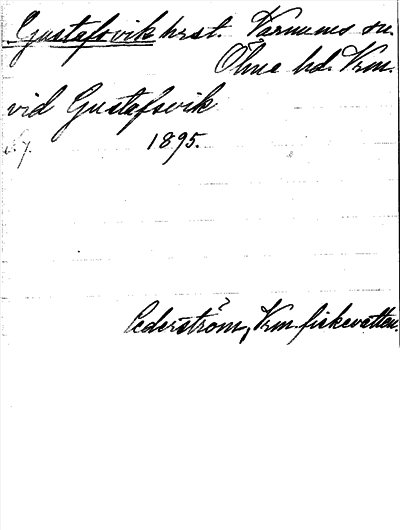 Gustafsvik hrst. Varnums sn.
Ölme hd. Vrm.
vid Gustafsvik
1895.
Cederström, Vrm. fiskevatten.